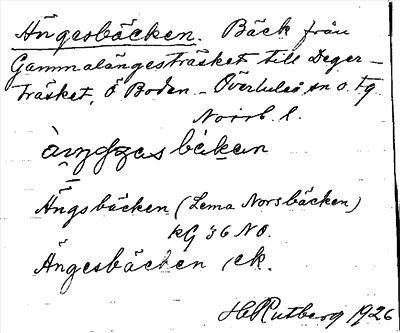 Ängesbäcken. Bäck från
Gammalängesträsket till Deger-
träsket, Ö Boden. - Överluleå sn o. tg
Norrb. l.
bäkan
Ängsbäcken (Lema Norsbäcken)
kG 36 NO.
Ängesbäcken ek.
HRutberg 1926